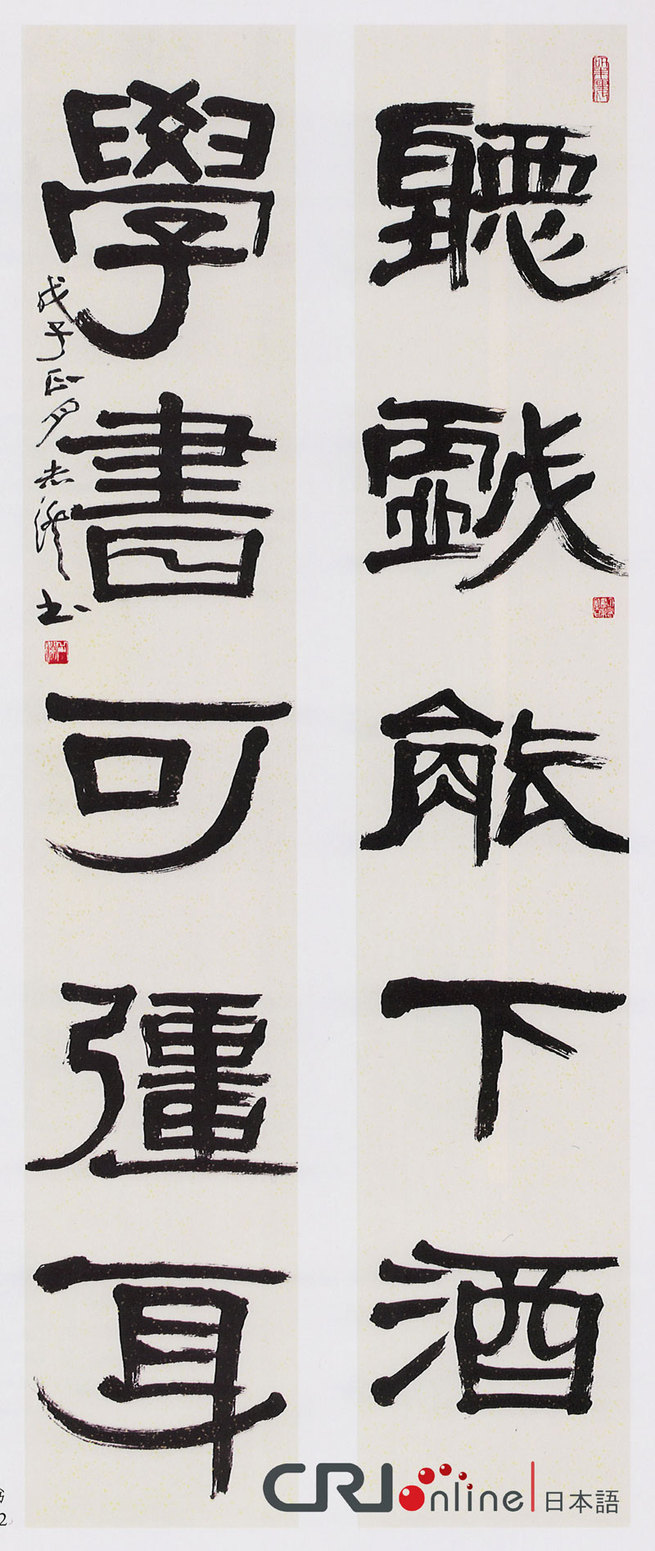 聽戲能下酒
學書可彊身
戊子正月志 书
CRI online 日本語
2